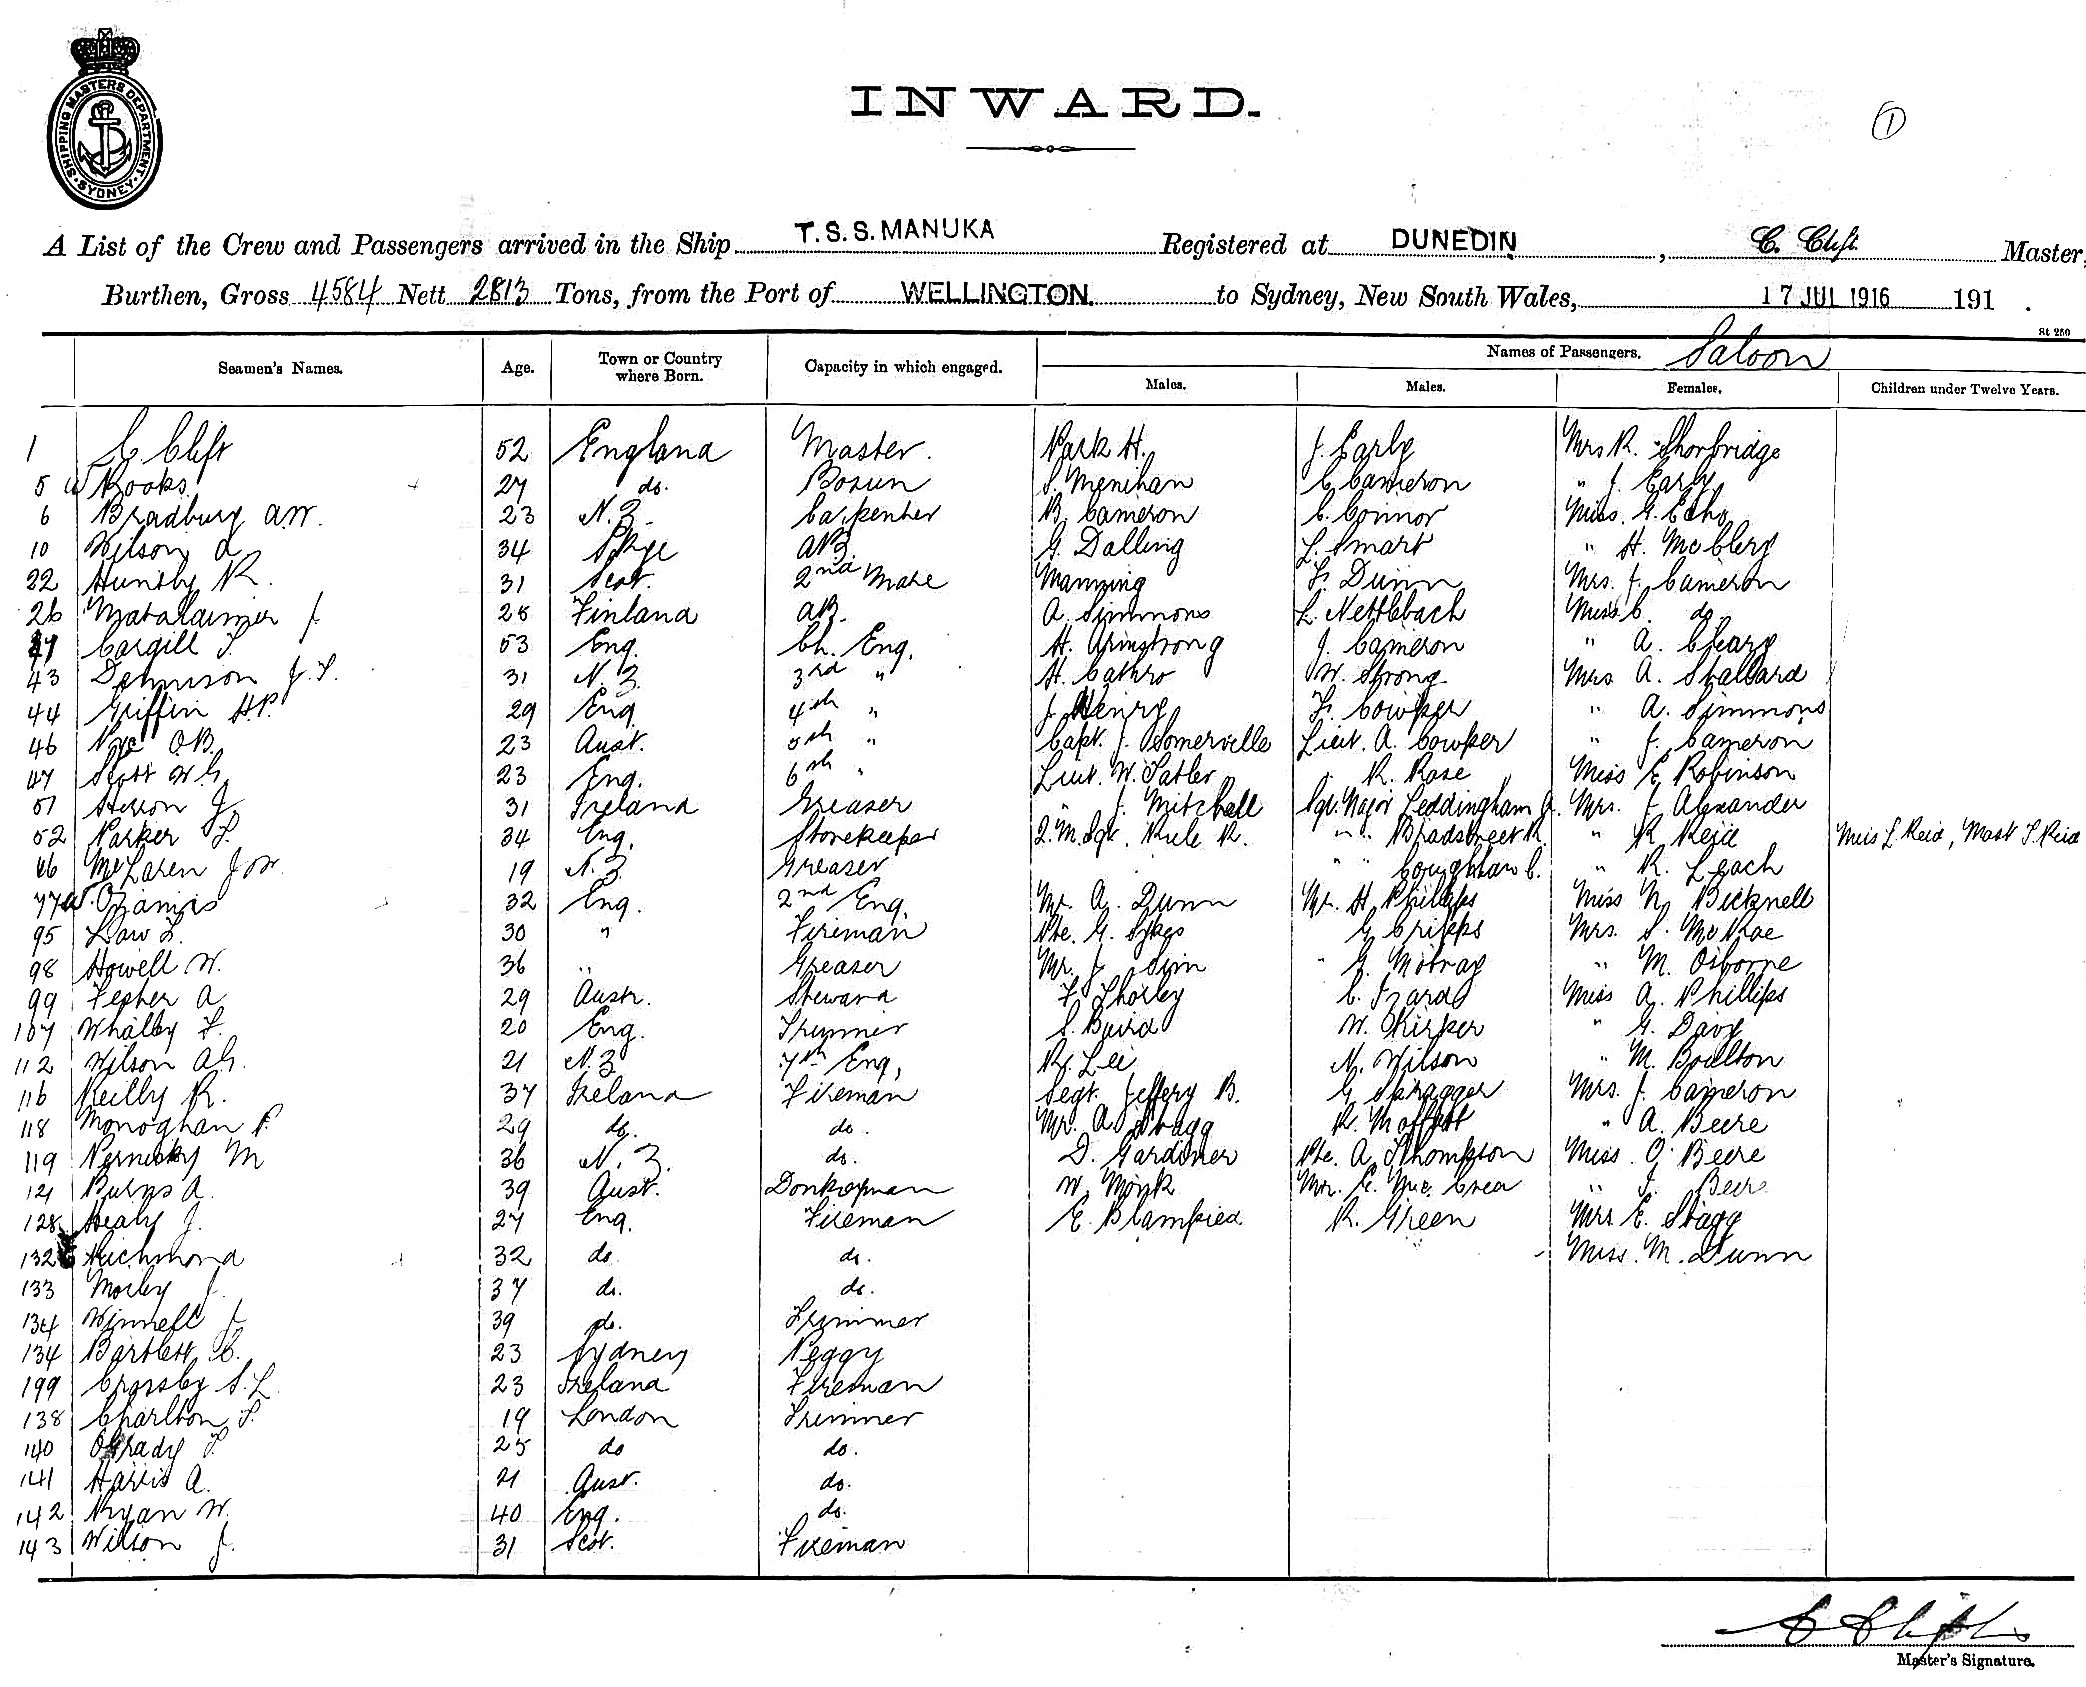 SHIPPING MASTERS DEPARTMENT
SYDNEY
INWARD.
1
A List of the Crew and Passengers arrived in the Ship T.S.S. MANUKA Registered at DUNEDIN, C. Clift Master,
Burthen, Gross 4584 Nett 2813 Tons, from the Port of WELLINGTON. to Sydney, New South Wales, 17 JUL 1916 191 .
St 250
Seamen's Names. Age. Town or Country where Born. Capacity in which engaged. Names of Passengers. Saloon
Males. Males. Females. Children under Twelve Years.
1 C Clift 52 England Master. Park H. J. Early Mrs R. Shorbridge
5 W Rooks 27 do. Bosun S. Menihan C Cameron " J. Early
6 Bradbury A.W. 23 N.Z. Carpenter B. Cameron C. Connor Miss. G.
10 Wilson A 34 Skye AB. G. Dalling L. Smart " H. McClery
22 R. 31 Scot. 2nd Mate Manning F. Dunn Mrs. J. Cameron
26 J 28 Finland AB. A. Simmons L. Nettlebach Miss C. do
Cargill T. 53 Eng. Ch. Eng. H. Armstrong J. Cameron " A. Cleary
43 Dennison J.T. 31 N.Z. 3rd " H. Cathro W. Strong Mrs A. Stallard
44 Griffin H.P. 29 Eng. 4th " J Henry F. Cowper " A. Simmons
46 Nye O.B. 23 Aust. 5th " Capt. J. Somerville Lieut. A. Cowper " J. Cameron
47 Scott W.G. 23 Eng. 6th " Lieut. W. R. Rose Miss E. Robinson
51 J. 31 Ireland Greaser " J. Mitchell Sgt. Major Leddingham J. Mrs. J Alexander
52 Parker T. 34 Eng. Storekeeper Q.M. Sgt. Rule R. " " Bradstreet R. " R Reid Miss L Reid, Mast T. Reid
66 McLaren J 19 N.Z. Greaser " " C. " R. Leach
77 32 Eng. 2nd Eng. Mr. A. Dunn Mr. H Phillips Miss N. Bicknell
95 Law 30 " Fireman Pte. G. Sykes G Cripps Mrs. S. McRae
98 Howell W. 36 " Greaser Mr. J " G. " M. Osborne
99 A 29 Austr. Steward F Thorley C. Izard Miss A. Phillips
107 Whalby F. 20 Eng. Trimmer S. Baird W. Skirper " G. Davy
112 Wilson A.G. 21 N.Z 7th Eng. R. Lee N. Wilson " M. Boulton
116 Reilly R. 37 Ireland Fireman Segt. Jeffery B. G Spragger Mrs. J. Cameron
118 Monoghan P. 29 do. do. Mr. A Stagg R. Moffatt " A. Beere
119 M 36 N.Z. do. D. Gardiner Pte. A Thompson Miss. O. Beere
121 Burns A. 39 Aust. Donkeyman W. Monk Mr. E. Mc. Crea " J. Beere
128 Healy J. 27 Eng. Fireman E. Blampied R. Green Mrs E. Stagg
132 Richmond 32 do do. Miss. M. Dunn
133 Morley J. 37 do. do.
134 Winnell J 39 do. Trimmer
134 Bartlett C. 23 Sydney Peggy
199 Crossley S.L. 23 Ireland Fireman
138 Charlton T. 19 London Trimmer
140 OGrady T 25 do do.
141 Harris A. 21 Aust. do.
142 Ryan W. 40 Eng. do.
143 Wilson J. 31 Scot. Fireman
C Clift
Master's Signature.